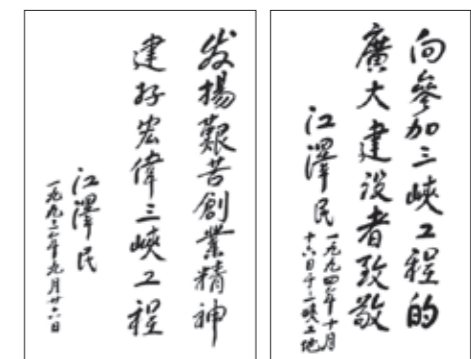 向參加三峽工程的
廣大建设者致敬
江澤民
一九九四年十月
十六日于三峡工地
发揚艱苦創業精神
建好宏偉三峽工程
江澤民
一九九三年九月廿六日